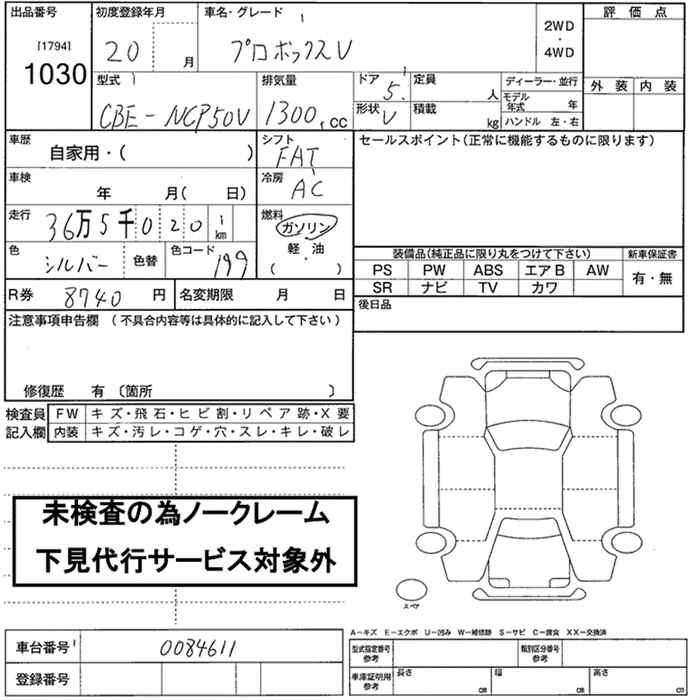 出品番号
[1794]
1030
初度登録年月
20 月
車名・グレード
プロボックスV
2WD
・
4WD
評価点
外装 内装
型式
CBE-NCP50V
排気量
1300 cc
ドア
5
形状
V
定員
人
積載
kg
ディーラー・並行
モデル年式 年
ハンドル 左・右
車歴
自家用・( )
シフト
FAT
セールスポイント(正常に機能するものに限ります)
車検
年 月( 日)
冷房
AC
走行
36万5千020 km
燃料
ガソリン
軽・油
( )
色
シルバー
色替
色コード
199
装備品(純正品に限り丸をつけて下さい)
新車保証書
PS PW ABS エアB AW
SR ナビ TV カワ
有・無
R券 8740 円
名変期限 月 日
後日品
注意事項申告欄 (不具合内容等は具体的に記入して下さい)
修復歴 有 〔箇所 〕
検査員 FW キズ・飛石・ヒビ割・リペア跡・X要
記入欄 内装 キズ・汚レ・コゲ・穴・スレ・キレ・破レ
未検査の為ノークレーム
下見代行サービス対象外
スペア
A-キズ E-エクボ U-凹み W-補修跡 S-サビ C-腐食 XX-交換済
車台番号 0084611
登録番号
型式指定番号
参考
類別区分番号
参考
車庫証明用
参考
長さ cm
幅 cm
高さ cm